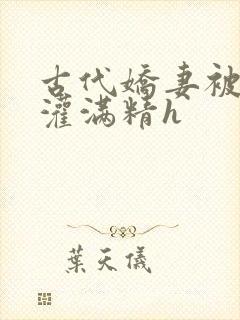 古代嬌妻被
灌滿精h
葉天儀